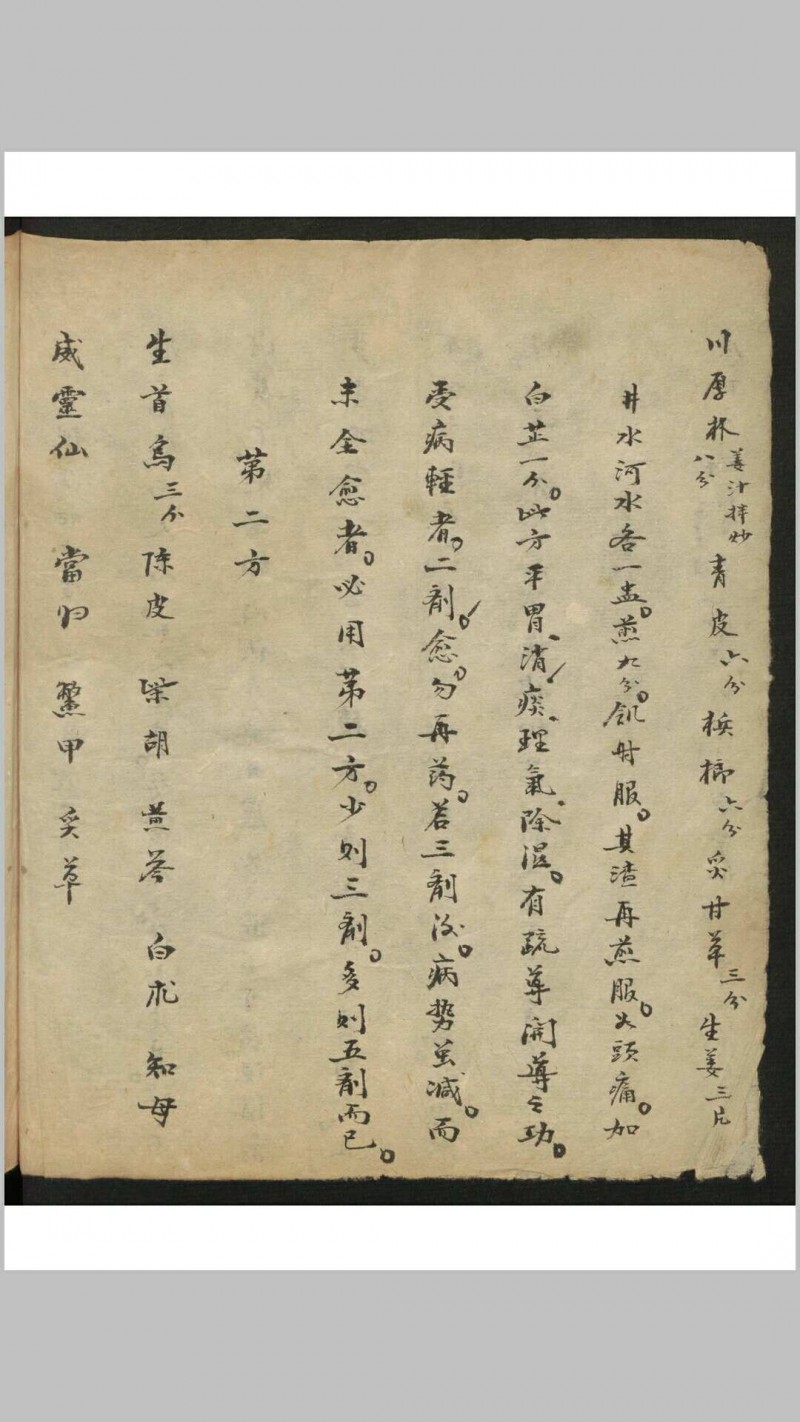 川厚朴八分姜汁拌炒青皮六分梹榔六分炙甘草三分生姜三片
井水河水各一盅。煎九分。飢时服。其渣再煎服。头頭痛。加
白芷一分。此方平胃、消痰、理氣、除湿。有疏導開導之功。
受病輕者。二剤。愈。勿再药。若三剤後。病势虽减。而
未全愈者。必用苐二方。少则三剤。多则五剤而已。
苐二方
生首烏三分陈皮 柴胡 黄芩 白朮 知母
威靈仙 當归 鱉甲 炙草